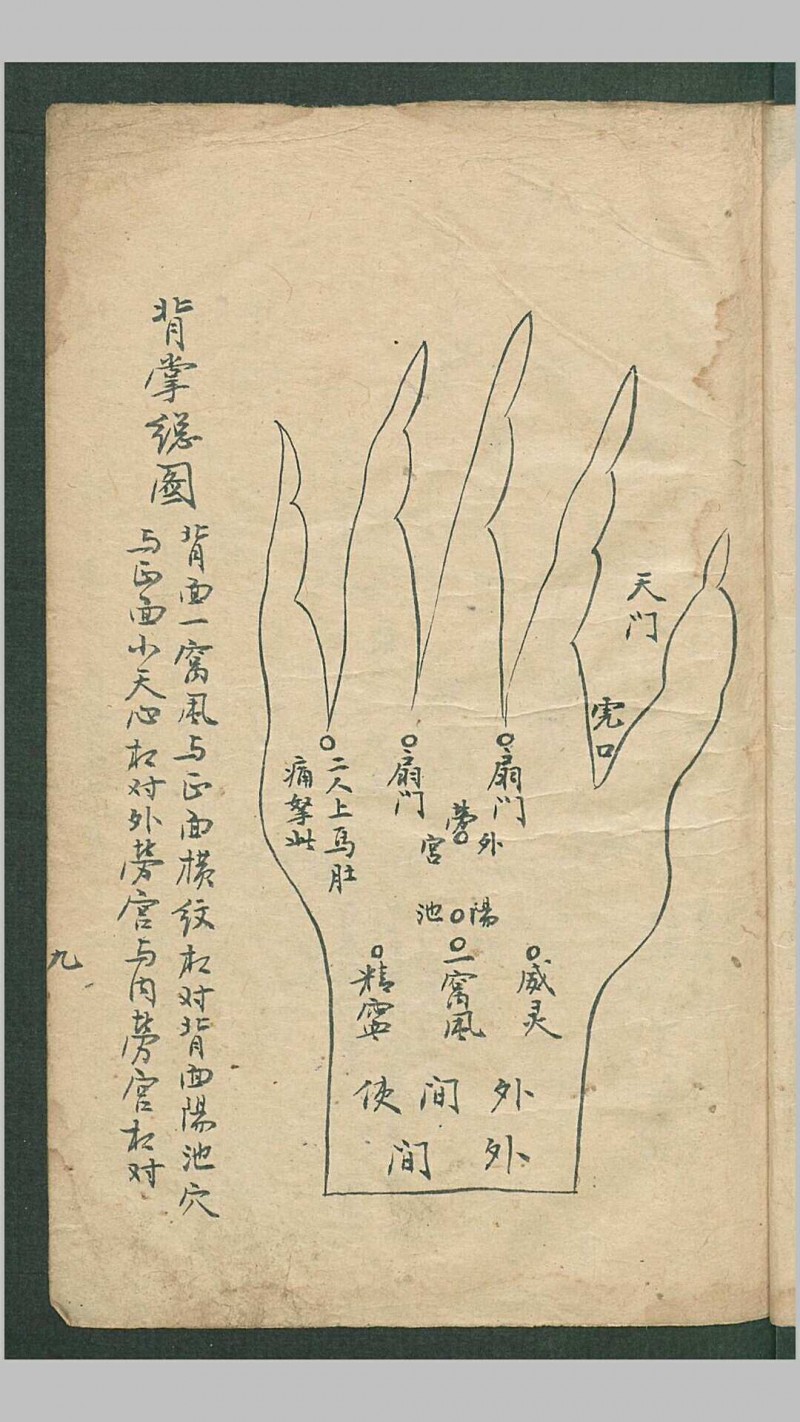 天门
虎口
扇门
外
劳
宫
扇门
二人上马肚
痛拏此
陽
池
威灵
一窩風
精寧
外間使
外間
背掌総图
背面一窩風与正面横纹相对背面陽池穴
与正面小天心相对外劳宫与内劳宫相对
九